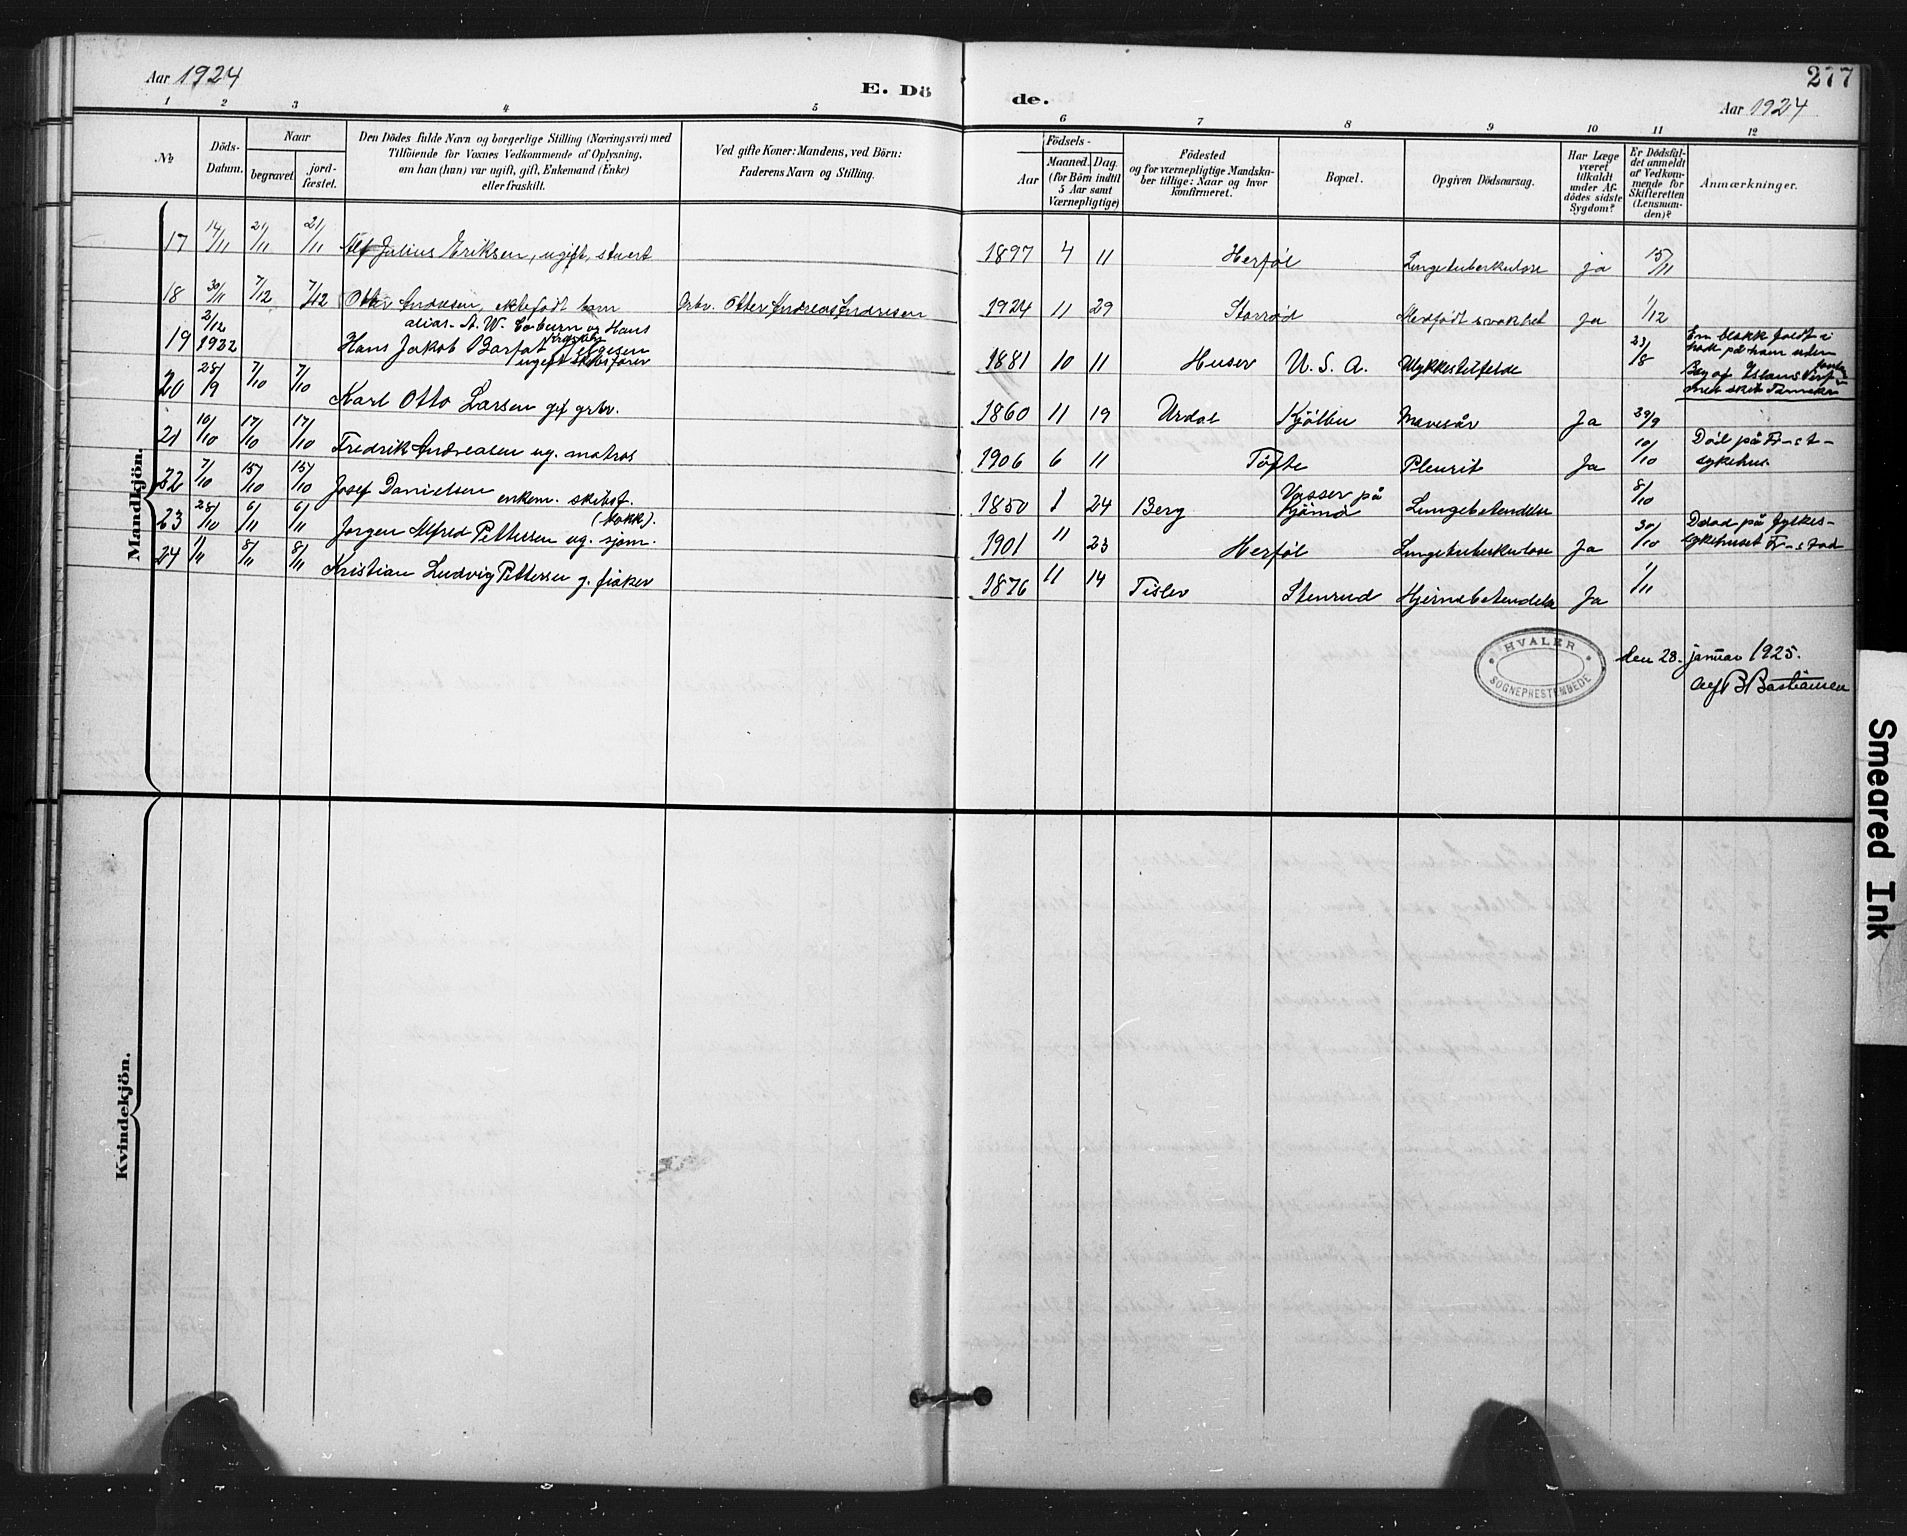 277
Aar 1924
E. Dö
de.
Aar 1924
1 2 3 4 5 6 7 8 9 10 11 12
No
Döds-
Datum.
Naar
begravet
jord-
fæstet.
Den Dödes fulde Navn og borgerlige Stilling (Næringsvei) med
Tilföiende for Voxnes Vedkommende af Oplysning,
om han (hun) var ugift, gift, Enkemand (Enke)
eller fraskilt.
Ved gifte Koner: Mandens, ved Börn:
Faderens Navn og Stilling.
Födsels-
Aar
Maaned.
Dag.
(for Börn indtil
5 Aar samt
Værnepligtige)
Födested
og for værnepligtige Mandska-
ber tillige: Naar og hvor
konfirmeret.
Bopæl.
Opgiven Dödsaarsag.
Har Læge
været
tilkaldt
under Af-
dödes sidste
Sygdom?
Er Dödsfal-
det anmeldt
af Vedkom-
mende for
Skifteretten
(Lensman-
den)?
Anmærkninger.
Mandkjön.
17 14/11 21/11 21/11 Alf Julius Eriksen, ugift, stuert 1897 4 11 Herføl Lungetuberkulose ja 15/11
18 30/11 7/12 7/12 Otter Andresen, ektefødt barn Grbr. Otter Andreas Andresen 1924 11 29 Storrød Medfødt svakhet ja 1/12
alias A. W. Coburn og Hans
19 2/12 1922 Hans Jakob Barfat
ugift skibsfører 1881 10 11 Huser U. S. A. Ulykkestilfelde 23/8
En blokk faldt i
20 28/9 7/10 7/10 Karl Otto Larsen gif grbr. 1860 11 19 Urdal Kjølbu Mavesår Ja 29/9
21 10/10 17/10 17/10 Fredrik Andreasen ug. matros 1906 6 11 Tofte Pleurit Ja 10/10 Död på Fr-st-
sykehus.
22 7/10 15/10 15/10 Josef Danielsen enkem. skibsf. 1850 1 24 Berg Vasser på
Tjømø Lungebetendelse 8/10
23 28/10 6/11 6/11 Jørgen Alfred Pettersen ug. sjøm. (kokk). 1901 11 23 Herføl Lungetuberkulose Ja 30/10 Død på fylkes-
sykehuset Fr-stad
24 1/11 8/11 8/11 Kristian Ludvig Pettersen g. fisker 1876 11 14 Tisler Stenrud Hjernebetendelse Ja 1/11
HVALER
SOGNEPRESTEMBEDE
den 28. januar 1925.
Alf B Bastiansen
Kvindekjön.
Smeared Ink